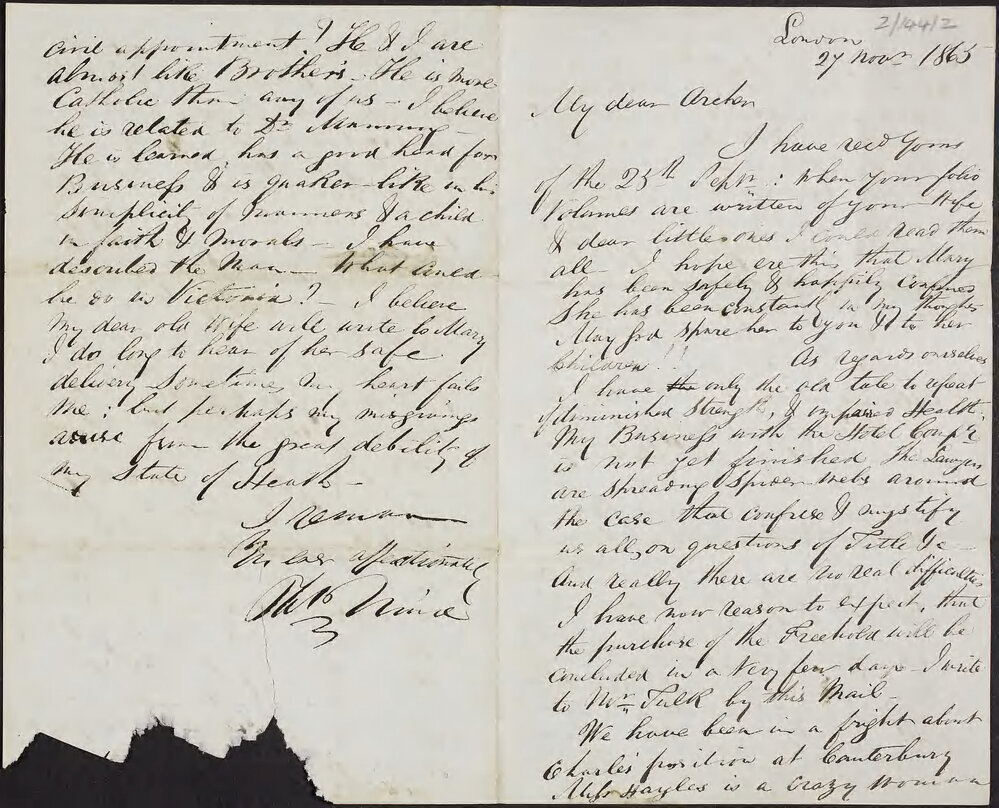 2/144/2
London
27 Novr 1865
My dear Archer
I have recd yours
of the 25th Septr: When your folio
Volumes are written of your Wife
& dear little ones I could read them
all – I hope ere this, that Mary
has been safely & happily confined
She has been constantly in my thoughts
May God spare her to you & to her
Children!! As regards ourselves
I have the only the old tale to repeat
of diminished Strength, & impaired Health.
My Business with the Hotel Compy
is not yet finished The Lawyers
are spreading Spider webs around
the case that confuse & mystify
us all, on questions of Title &c –
And really there are no real difficulties
I have now reason to expect, that
the purchase of the Freehold will be
concluded in a very few days – I write
to Mr Tulk by this Mail –
We have been in a fright about
Charles position at Canterbury
Miss Hayles is a crazy woman
civil appointment? He & I are
almost like Brothers – He is more
Catholic than any of us – I believe
he is related to Dr Manning –
He is learned, has a good head for
Business & is quaker-like in his
simplicity of manners & a child
in faith & morals – I have
described the Man – What could
he do in Victoria? – I believe
my dear old Wife will write to Mary
I do long to hear of her safe
delivery – Sometimes my heart fails
me; but perhaps my misgivings
arise from the great debility of
my State of Health –
I remain
Yrs ever affectionately